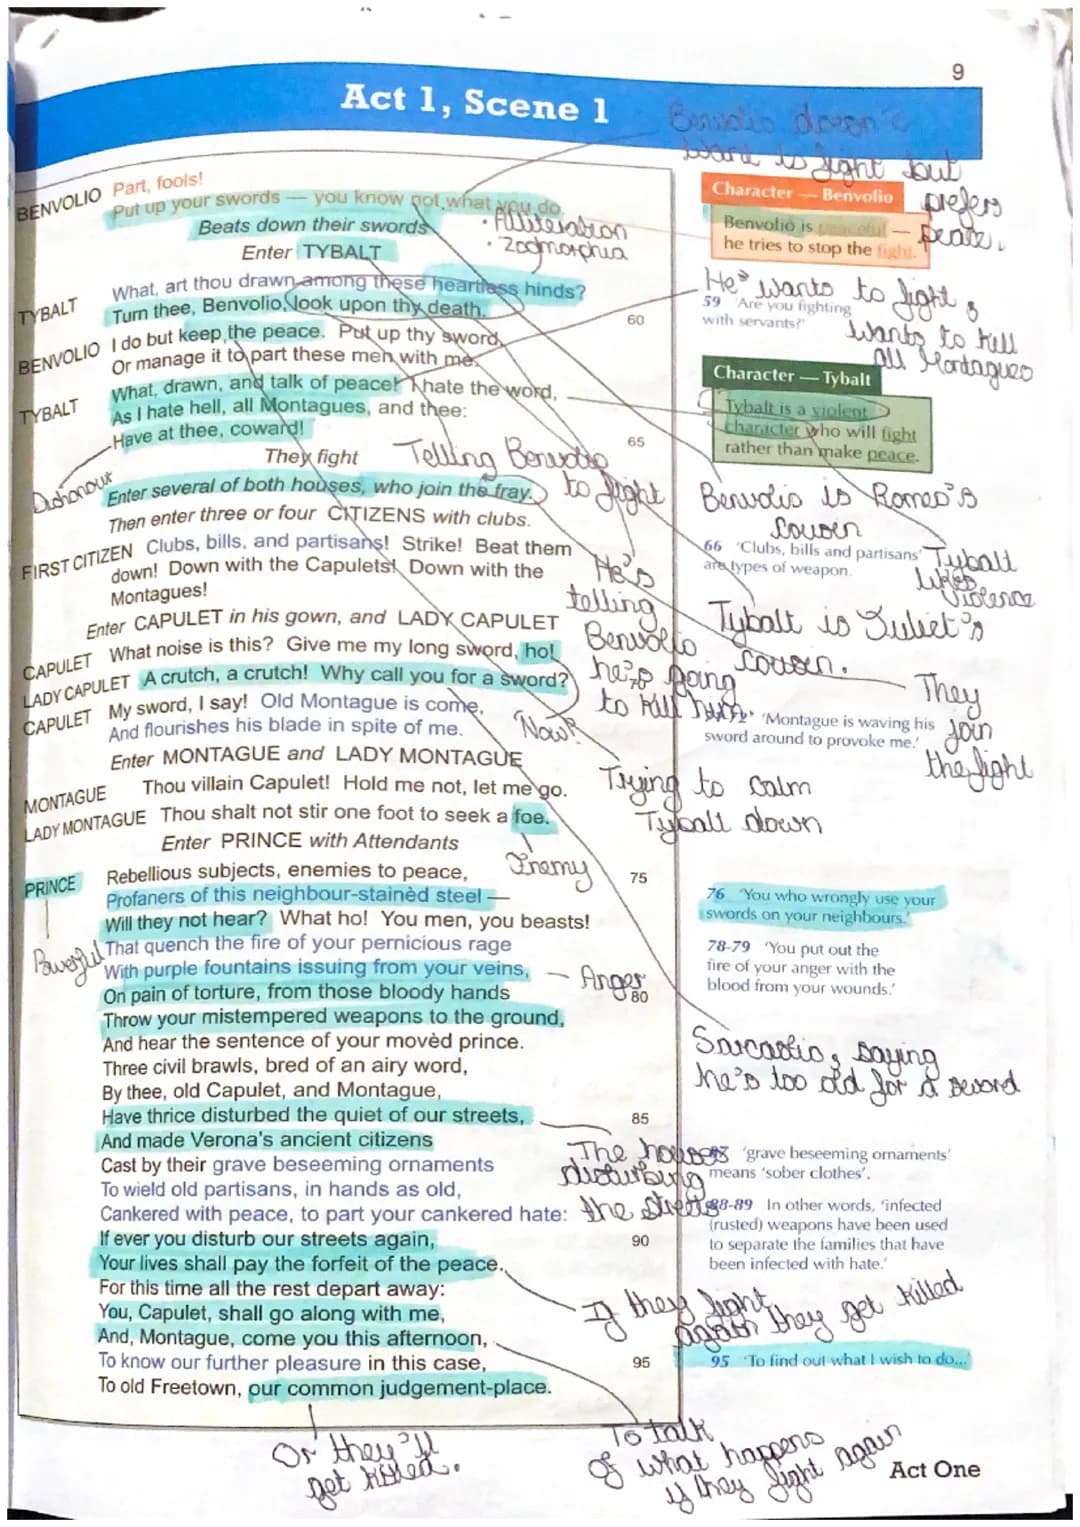 9
Act 1, Scene 1
Benvolio doesn't
want to fight but
prefers
peace.
BENVOLIO Part, fools!
Put up your swords — you know not what you do.
Beats down their swords
• Alliteration
• Zoomorphia
Enter TYBALT
Character — Benvolio
Benvolio is peaceful —
he tries to stop the fight.
TYBALT What, art thou drawn among these heartless hinds?
Turn thee, Benvolio, look upon thy death.
60
He wants to fight &
wants to kill
all Montagues
59 'Are you fighting
with servants?'
BENVOLIO I do but keep the peace. Put up thy sword,
Or manage it to part these men with me.
TYBALT What, drawn, and talk of peace! I hate the word,
As I hate hell, all Montagues, and thee:
Have at thee, coward!
65
Character — Tybalt
Tybalt is a violent
character who will fight
rather than make peace.
They fight
Telling Benvolio
to fight
Dishonour
Enter several of both houses, who join the fray.
Then enter three or four CITIZENS with clubs.
Benvolio is Romeo's
cousin
FIRST CITIZEN Clubs, bills, and partisans! Strike! Beat them
down! Down with the Capulets! Down with the
Montagues!
66 'Clubs, bills and partisans'
are types of weapon.
Tybalt
likes
violence
Enter CAPULET in his gown, and LADY CAPULET
He's
telling
Benvolio
he's going
to kill him
Tybalt is Juliet's
cousin.
CAPULET What noise is this? Give me my long sword, ho!
LADY CAPULET A crutch, a crutch! Why call you for a sword?
CAPULET My sword, I say! Old Montague is come,
And flourishes his blade in spite of me.
'Now?'
They
join
the fight
'Montague is waving his
sword around to provoke me.'
Enter MONTAGUE and LADY MONTAGUE
MONTAGUE Thou villain Capulet! Hold me not, let me go.
LADY MONTAGUE Thou shalt not stir one foot to seek a foe.
Trying to calm
Tybalt down
Enter PRINCE with Attendants
Enemy
PRINCE Rebellious subjects, enemies to peace,
75
Profaners of this neighbour-stainèd steel —
Will they not hear? What ho! You men, you beasts!
76 'You who wrongly use your
swords on your neighbours.'
Powerful
That quench the fire of your pernicious rage
With purple fountains issuing from your veins,
Anger
On pain of torture, from those bloody hands
80
78-79 'You put out the
fire of your anger with the
blood from your wounds.'
Throw your mistempered weapons to the ground,
And hear the sentence of your movèd prince.
Three civil brawls, bred of an airy word,
By thee, old Capulet, and Montague,
Sarcastic, saying
he's too old for a sword
Have thrice disturbed the quiet of our streets,
85
And made Verona's ancient citizens
Cast by their grave beseeming ornaments
The houses
disturbing
the streets
'grave beseeming ornaments'
means 'sober clothes'.
To wield old partisans, in hands as old,
Cankered with peace, to part your cankered hate:
88-89 In other words, 'infected
(rusted) weapons have been used
to separate the families that have
been infected with hate.'
If ever you disturb our streets again,
90
Your lives shall pay the forfeit of the peace.
For this time all the rest depart away:
You, Capulet, shall go along with me,
If they fight
again they get killed
And, Montague, come you this afternoon,
To know our further pleasure in this case,
95
95 'To find out what I wish to do...'
To old Freetown, our common judgement-place.
Or they'll
get killed.
To talk
of what happens
if they fight again
Act One